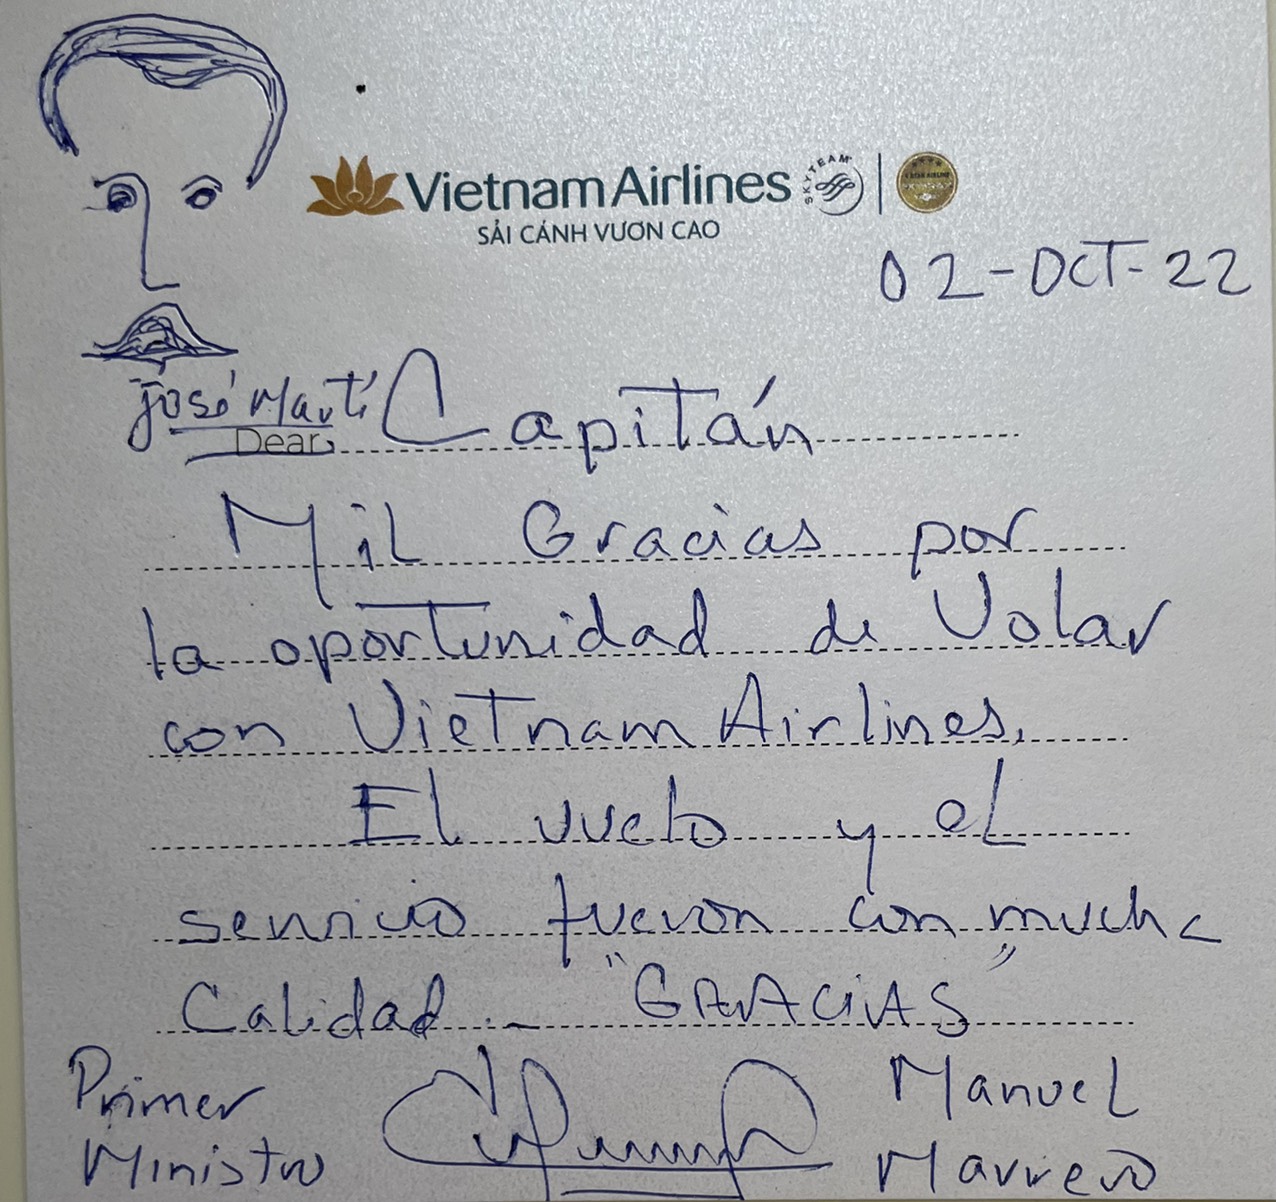 Vietnam Airlines SKYTEAM
SẢI CÁNH VƯƠN CAO
02-OCT-22
José Martí
Dear Capitán
Mil Gracias por
la oportunidad de Volar
con Vietnam Airlines.
El vuelo y el
servicio fueron con mucha
Calidad.- "GRACIAS"
Primer Manuel
Ministro Marrero